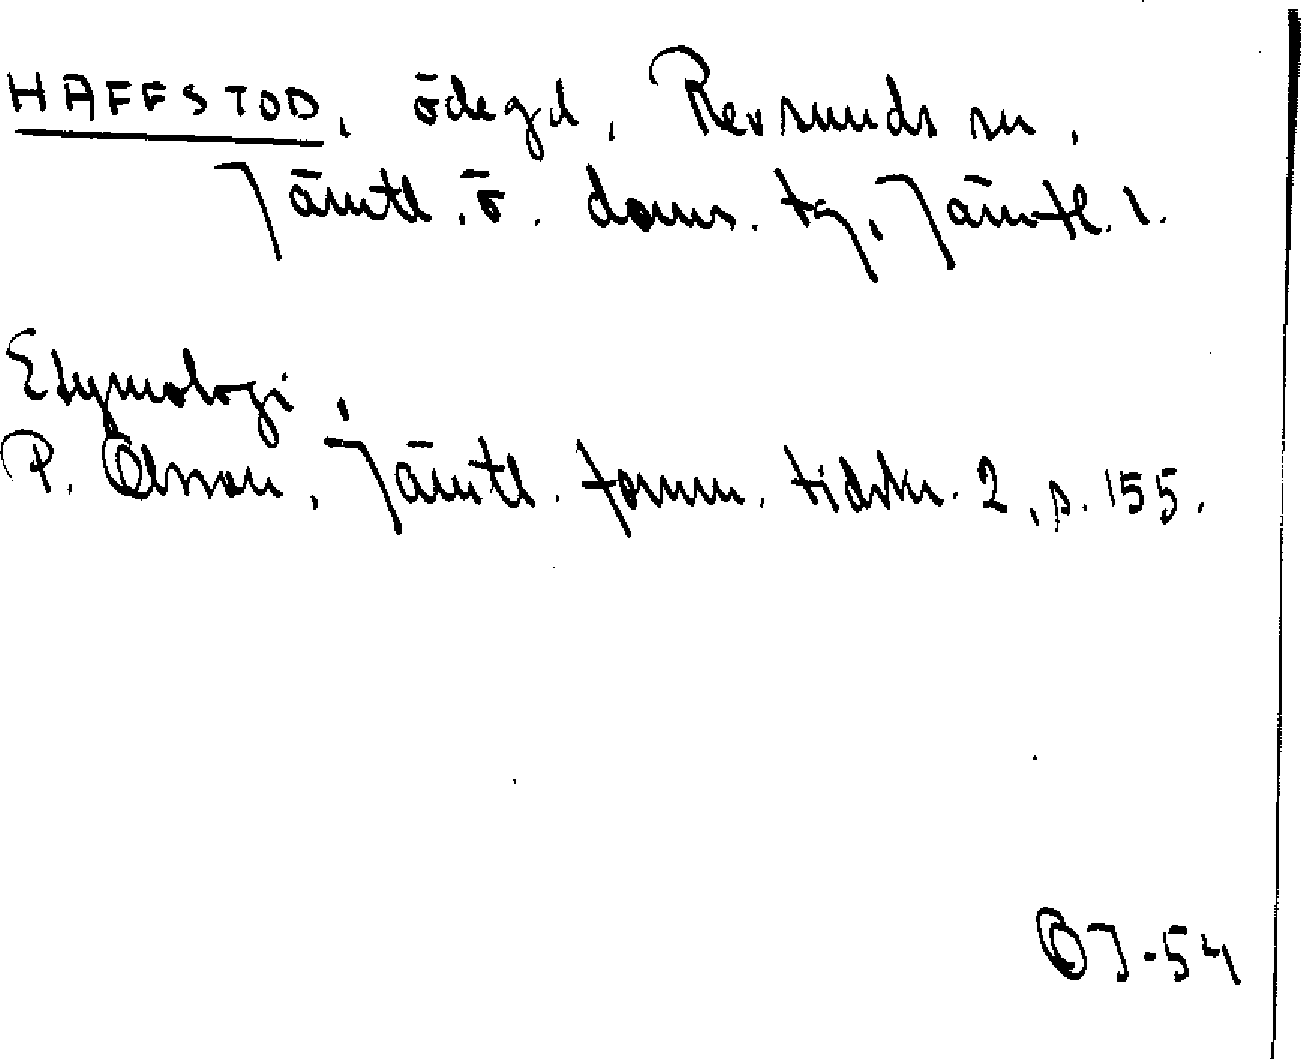 HAFFSTOD, ödegd, Revsunds sn,
Jämtl. ö. doms. tg, Jämtl. l.
Etymologi:
P. Olsson, Jämtl. fornm. tidskr. 2, s. 155.
OJ-54